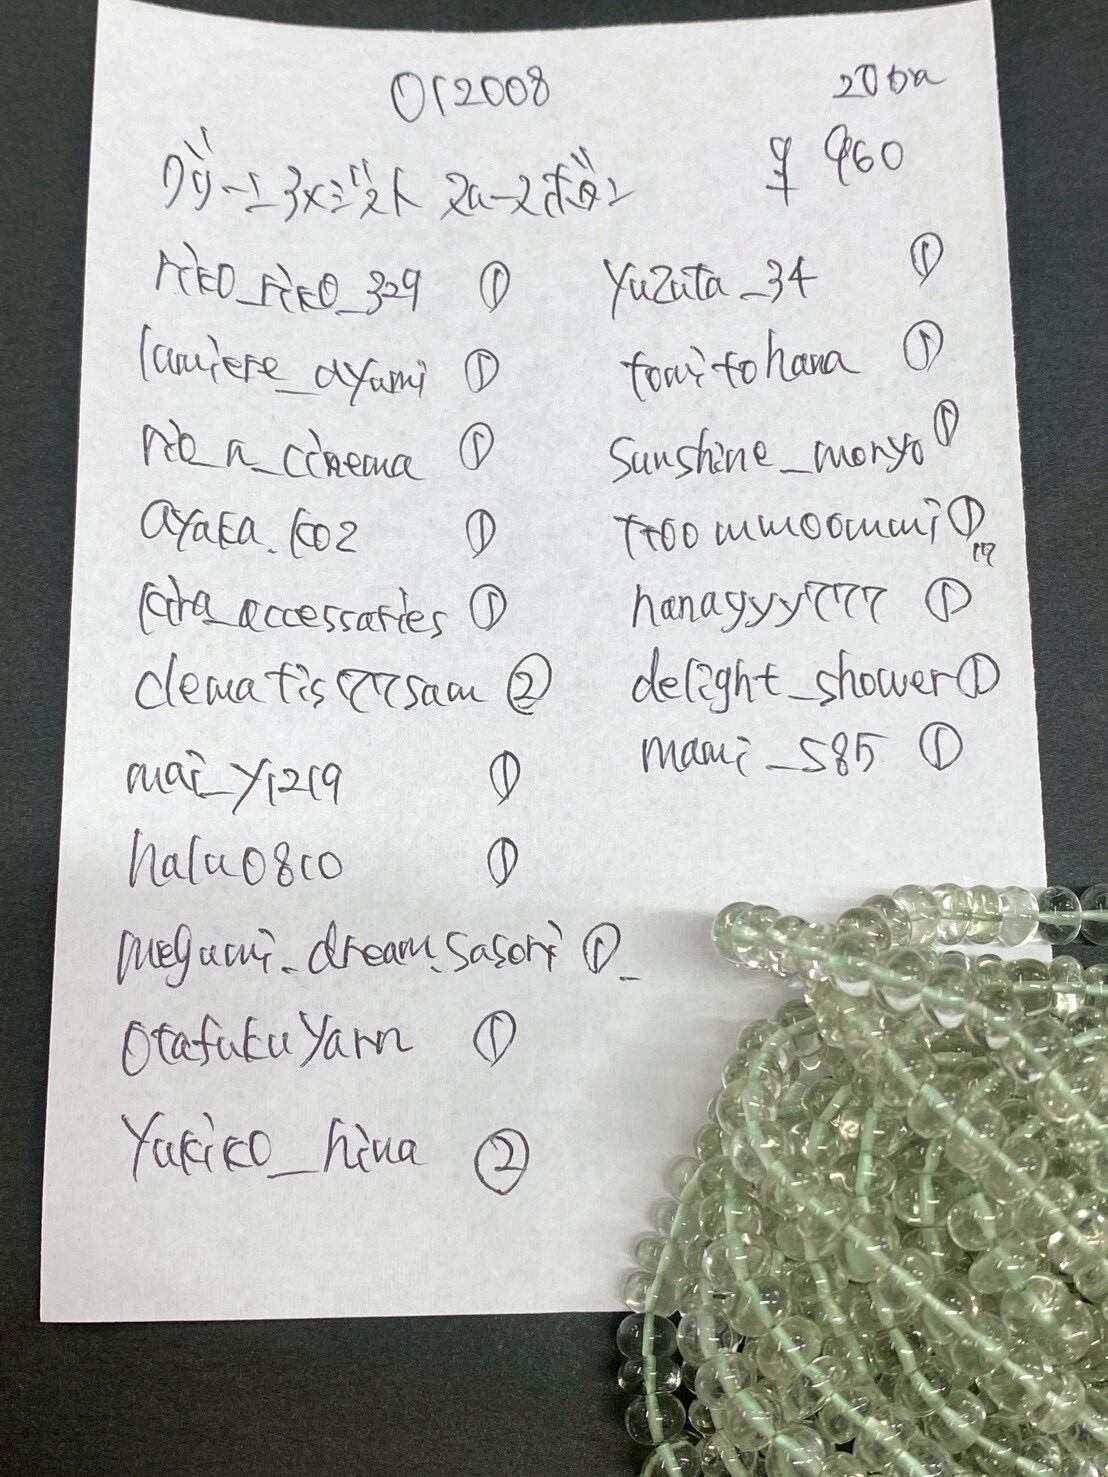 012008
20ba
グリーンアメジスト スムースボタン
¥ 960
riko_riko_329 ①
lumiere_ayumi ①
rio_n_cinema ①
ayaka.ko2 ①
kira_accessaries ①
clematis77sam ②
mai_y1219 ①
halu0810 ①
megumi_dream.sasori ①
otafukuyarn ①
yukiko_hina ②
yuzuta_34 ①
tomitohana ①
sunshine_monyo ①
ttoommoommi ①
hanagyy777 ①
delight_shower ①
mami_s85 ①